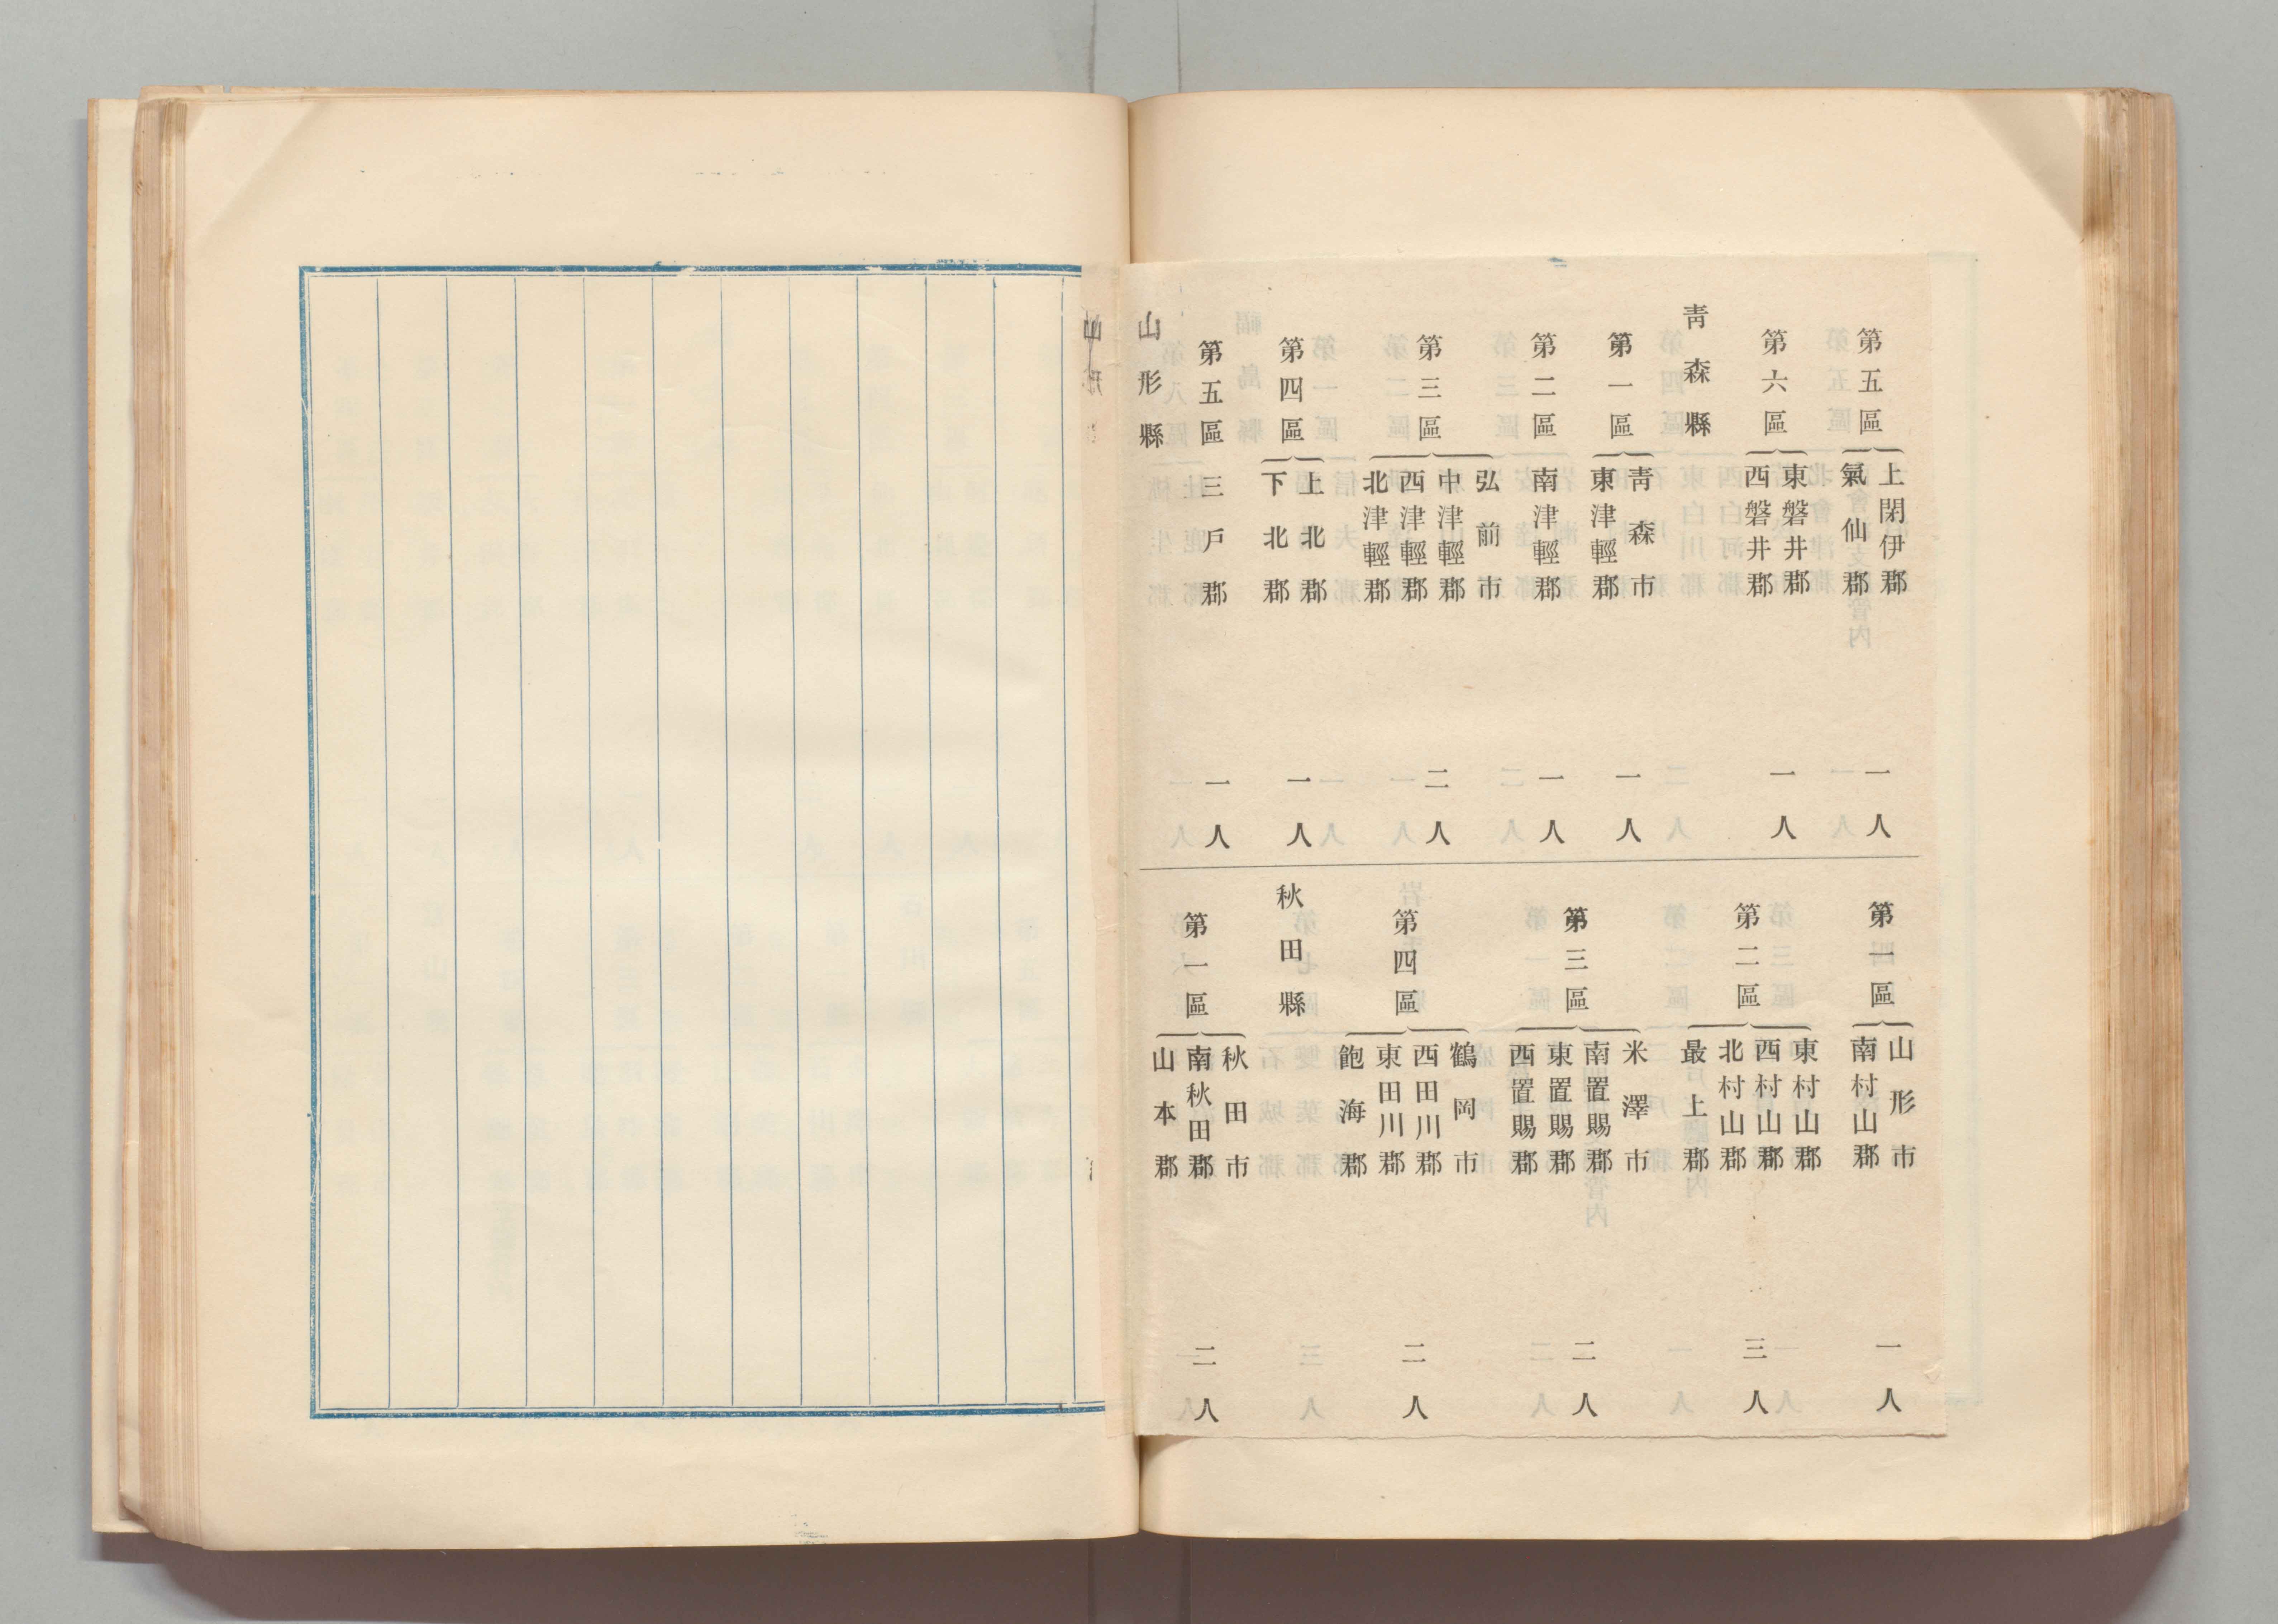 第五區
上閉伊郡
氣仙郡
一人
第六區
東磐井郡
西磐井郡
一人
靑森縣
第一區
靑森市
東津輕郡
一人
第二區
南津輕郡
一人
第三區
弘前市
中津輕郡
西津輕郡
北津輕郡
二人
第四區
上北郡
下北郡
一人
第五區
三戶郡
一人
山形縣
第一區
山形市
南村山郡
一人
第二區
東村山郡
西村山郡
北村山郡
最上郡
三人
第三區
米澤市
南置賜郡
東置賜郡
西置賜郡
二人
第四區
鶴岡市
西田川郡
東田川郡
飽海郡
二人
秋田縣
第一區
秋田市
南秋田郡
山本郡
二人